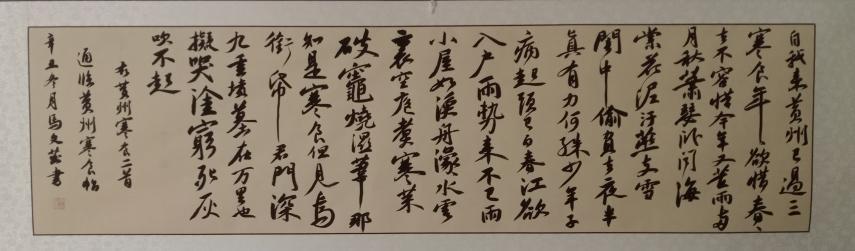 自我来黄州已过三
寒食年年欲惜春春
去不容惜今年又苦雨两
月秋萧瑟卧闻海
棠花泥污燕支雪
闇中偷负去夜半
真有力何殊少年子
病起头已白春江欲
入户雨势来不已雨
小屋如渔舟濛水云
里空庖煮寒菜
破竈烧湿苇那
知是寒食但见乌
衔帋君门深
九重坟墓在万里也
拟哭途穷死灰
吹不起
右黄州寒食二首
通临黄州寒食帖
辛丑冬月马文 书